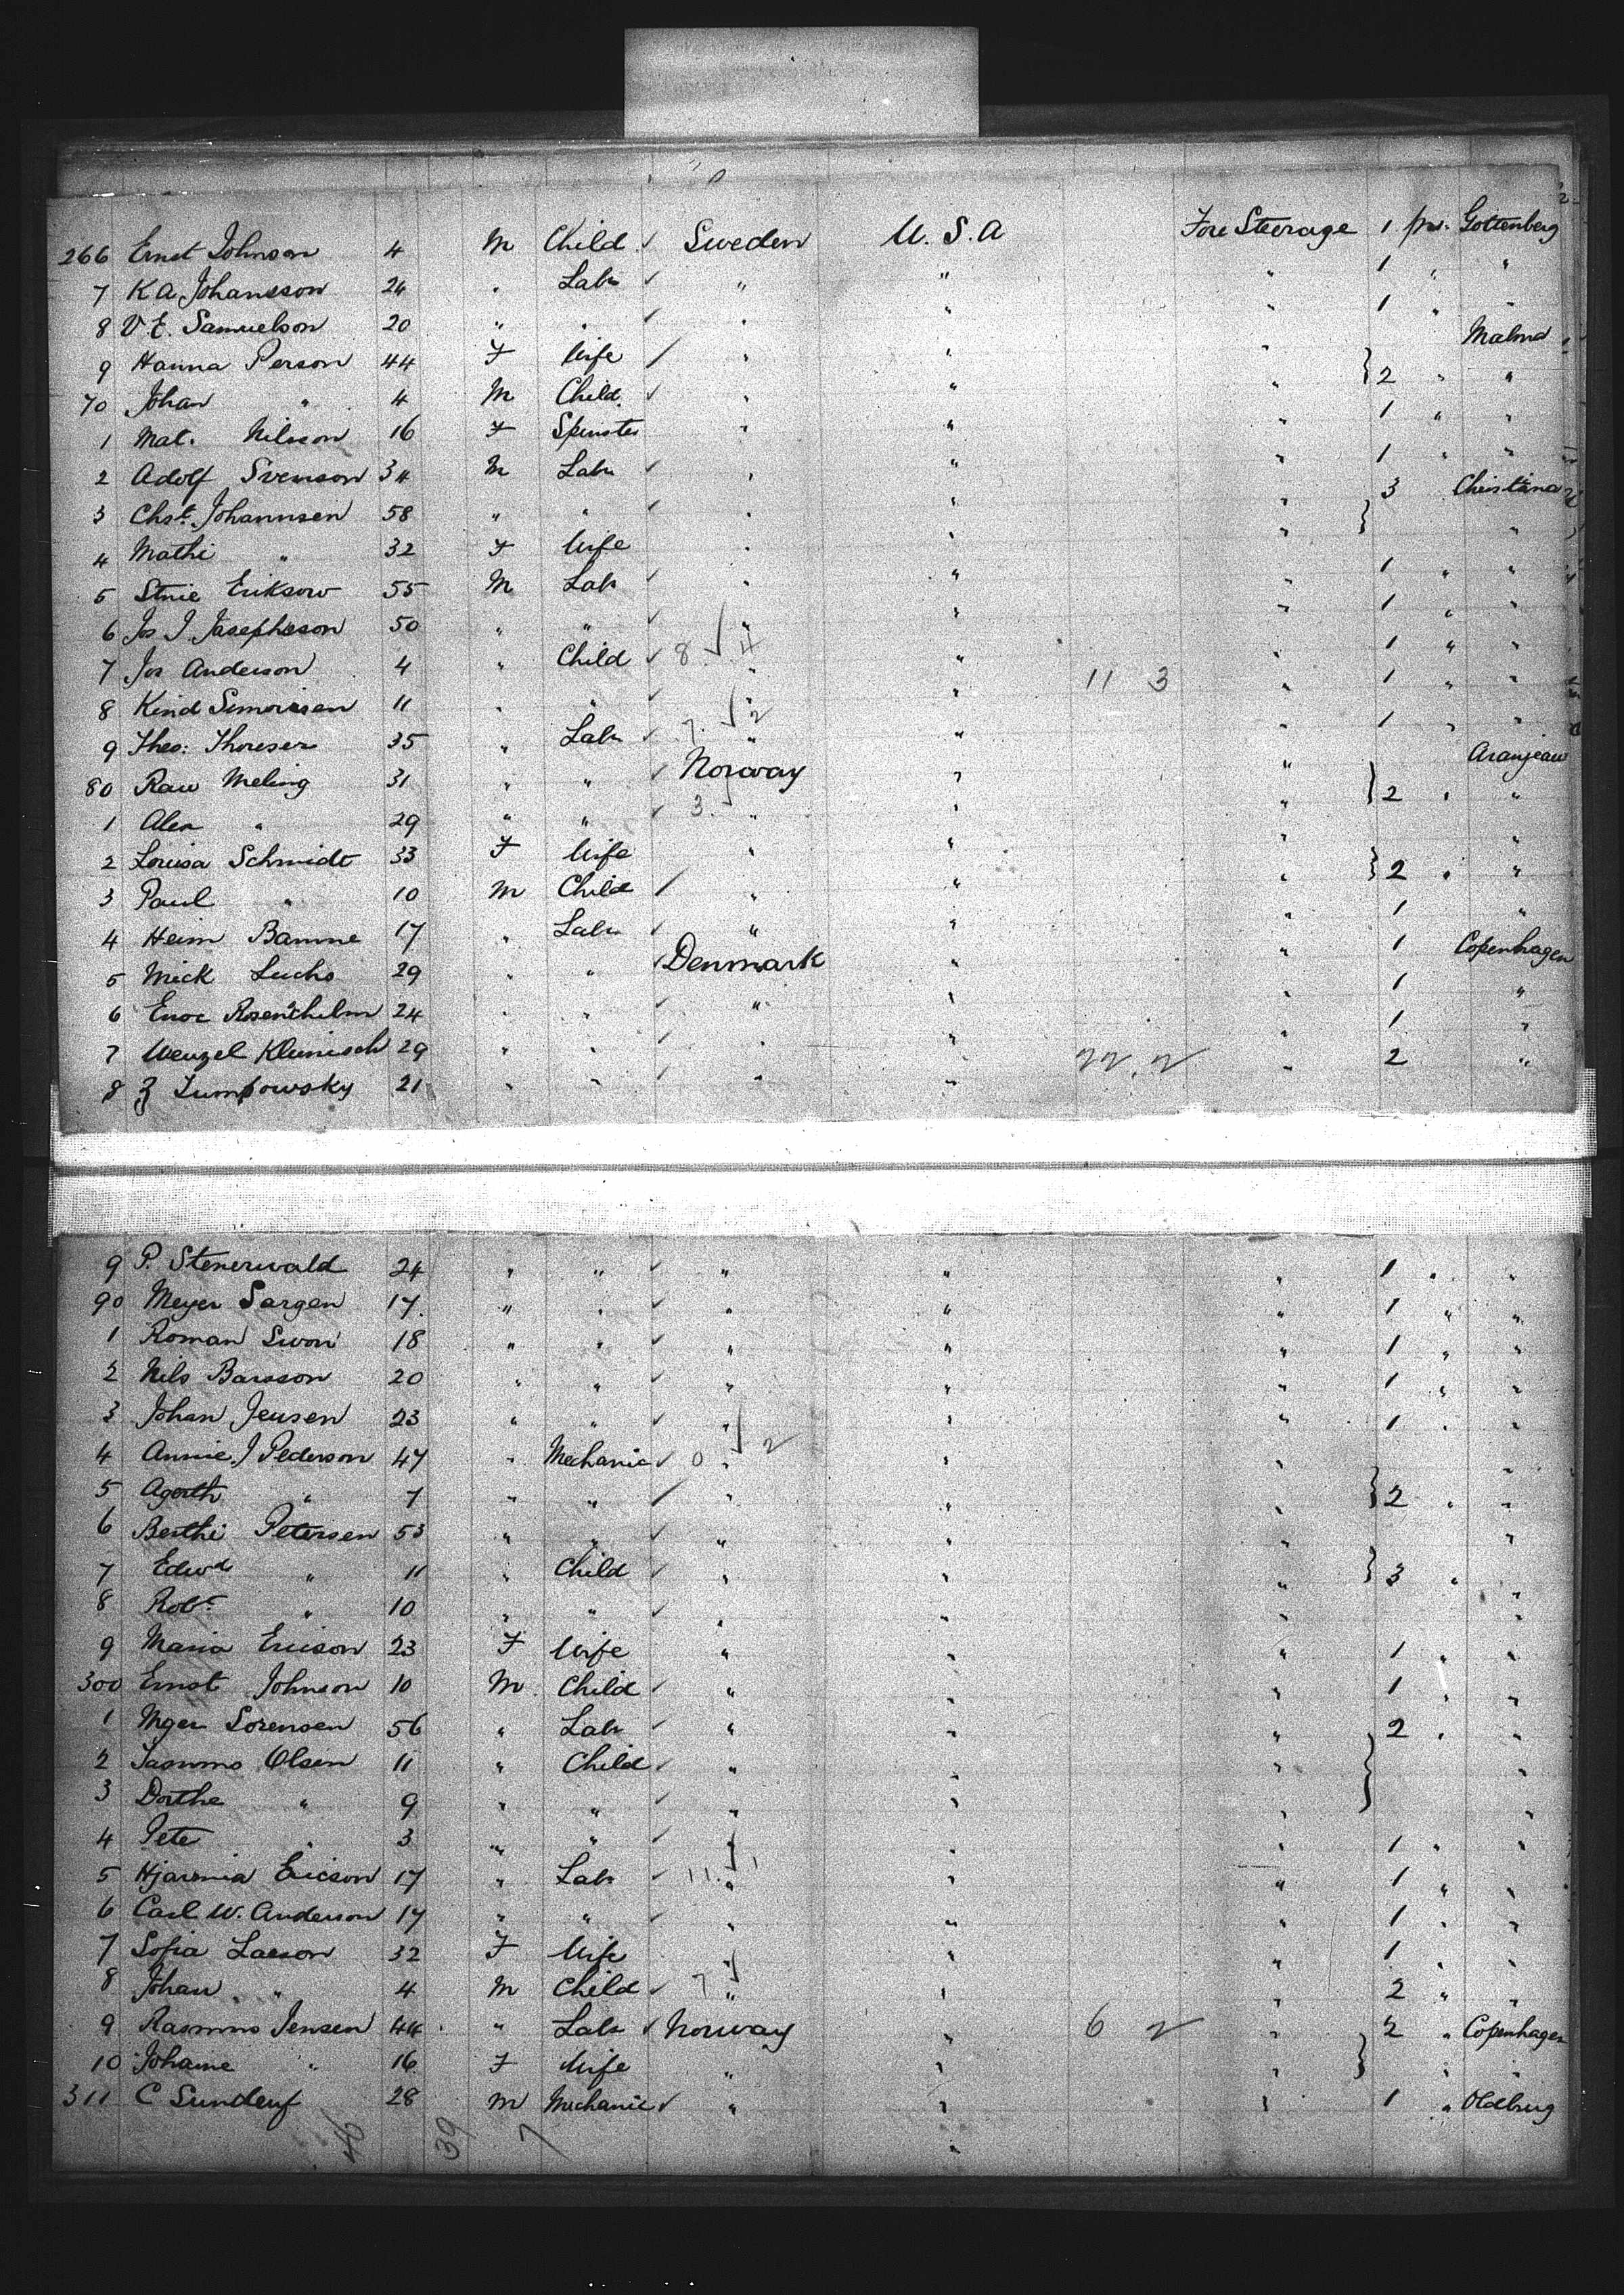 266 Ernst Johnson 4 M Child Sweden U.S.A Fore Steerage 1 pce. Gottenberg
7 K A Johansson 24 " Labr " " " 1 " "
8 V. E. Samuelson 20 " " " " " 1 " "
9 Hanna Person 44 F Wife " " " Malmo
70 Johan " 4 M Child " " " 2 " "
1 Mat. Nilsson 16 F Spinster " " " 1 " "
2 Adolf Svenson 34 M Labr " " " 1 " "
3 Chst. Johannsen 58 " " " " " 3 Christana
4 Mathi " 32 F Wife " " " "
5 Stnie Erikson 55 M Labr " " " 1 " "
6 Jos J. Josephsson 50 " " " " " 1 " "
7 Jos Anderson 4 " Child 8 4 " " " 1 " "
8 Kind 11 " " " " 11 3 " 1 " "
9 Theo: Thoreser 35 " Labr 7. 2 " " " 1 " "
80 Rau Meling 31 " " Norway " " Aranjeau
1 Alex " 29 " " 3. " " " 2 " "
2 Louisa Schmidt 33 F Wife " " " "
3 Paul " 10 M Child " " " 2 " "
4 Heim Bamne 17 " Labr " " " 1 "
5 Mick Luchs 29 " " Denmark " " 1 Copenhagen
6 Enoc Rosenthilm 24 " " " " " 1 "
7 Wenzel Klunisch 29 " " " " " 1 "
8 Z Lumpowsky 21 " " " " 22. 2 " 2 "
9 P. Stenerwald 24 " " " " " 1 " "
90 Meyer Sargen 17 " " " " " 1 " "
1 Roman Swon 18 " " " " " 1 " "
2 Nils Barsson 20 " " " " " 1 " "
3 Johan Jensen 23 " " " " " 1 " "
4 Annie J Pederson 47 " Mechanic 0 2 " " " "
5 Agerth " 7 " " " " " 2 " "
6 Berthi Petersen 53 " " " " " "
7 Edwd " 11 " Child " " " 3 " "
8 Robt " 10 " " " " " "
9 Maria Ericson 23 F Wife " " " 1 " "
300 Ernst Johnson 10 M Child " " " 1 " "
1 Mger Sorensen 56 " Labr " " " 2 " "
2 Olsen 11 " Child " " " "
3 Dorthe " 9 " " " " " "
4 Pete " 3 " " " " " 1 " "
5 Hjarmia Ericson 17 " Labr 11. 1 " " " 1 " "
6 Carl W. Anderson 17 " " " " " 1 " "
7 Sofia Larson 32 F Wife " " " 1 " "
8 Johan " 4 M Child 7 " " " 2 " "
9 Rasmus Jensen 44 " Labr Norway " 6 2 " 2 " Copenhagen
10 Johanne " 16 F Wife " " " " "
311 C 28 M Mechanic " " " 1 " Oldburg
46 39 7